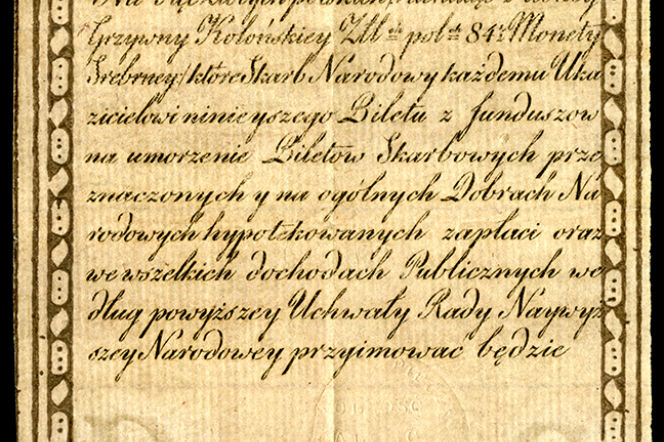 Grzywny Kolońskiey Złł: pol: 84½ Monety
Srebrney/ które Skarb Narodowy każdemu Uka
zicielowi ninieyszego Biletu z funduszow
na umorzenie Biletow Skarbowych prze
znaczonych y na ogólnych Dobrach Na
rodowych hypotekowanych zapłaci oraz
we wszelkich dochodach Publicznych we
dług powyższey Uchwały Rady Naywyż
szey Narodowey przyimowac będzie